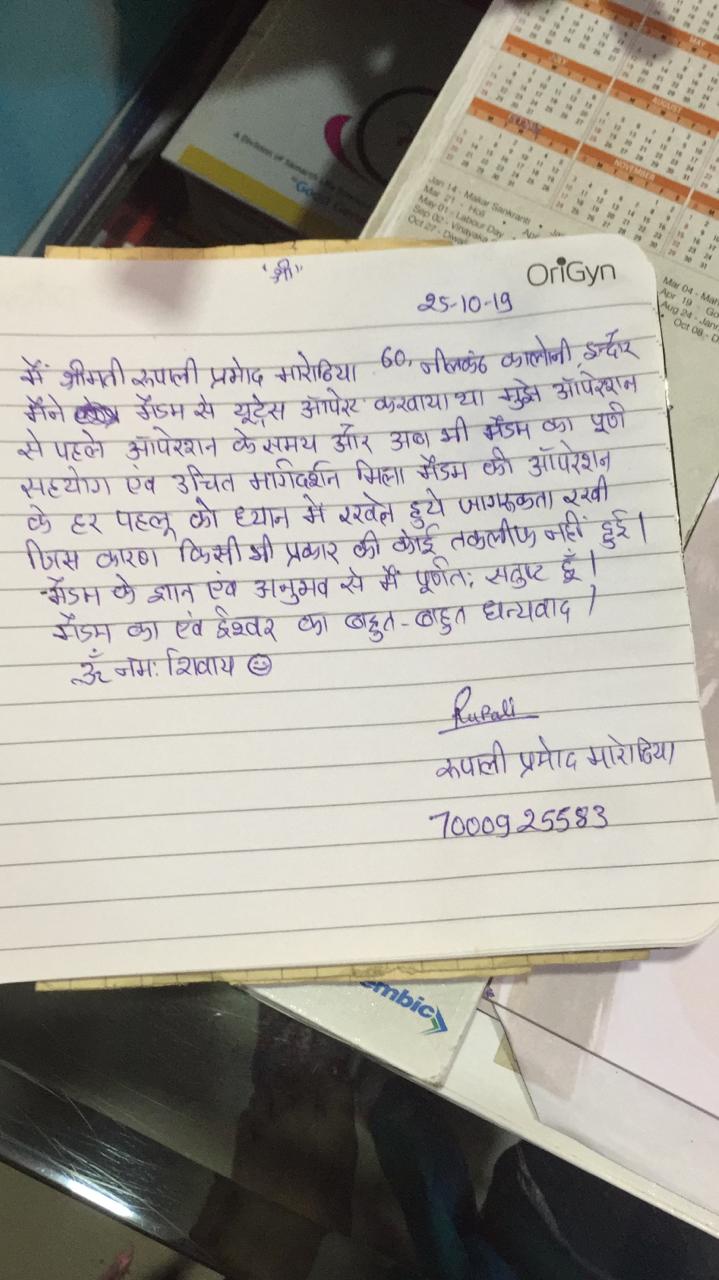 A Division of
"Good
JULY
AUGUST
NOVEMBER
MAY
Jan 14 - Makar Sankranti
Mar 21 - Holi
May 01 - Labour Day
Sep 02 - Vinayaka
Oct 27 - Diwa
Mar 04 - Mah
Apr 19 - Go
Aug 24 - Jan
Oct 08 - D
"श्री"
OriGyn
25-10-19
मैं श्रीमती रूपाली प्रमोद मारोठिया 60, नीलकंठ कालोनी इन्दौर
मैंने मैडम से यूट्रेस ऑपरेट करवाया था मुझे ऑपरेशन
से पहले ऑपरेशन के समय और अब भी मैडम का पूर्ण
सहयोग एंव उचित मार्गदर्शन मिला मैडम की ऑपरेशन
के हर पहलू को ध्यान में रखते हुये जागरूकता रखी
जिस कारण किसी भी प्रकार की कोई तकलीफ नहीं हुई।
मैडम के ज्ञान एंव अनुभव से मैं पूर्णतः सतुष्ट हूँ।
मैडम का एंव ईश्वर का बहुत-बहुत धन्यवाद।
ॐ नमः शिवाय ☺
Rupali
रूपाली प्रमोद मारोठिया
7000925583
embic